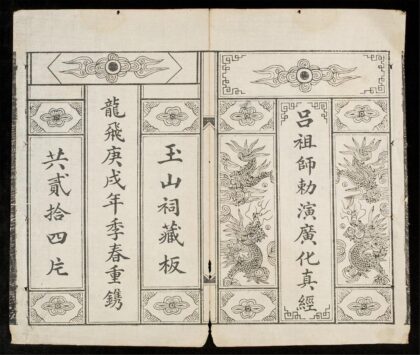 呂祖師勅演廣化真經
玉山祠藏板
龍飛庚戌年季春重鐫
共貳拾四片